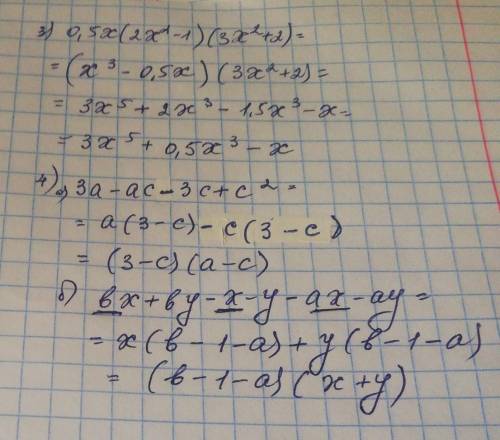 3) 0,5x(2x²-1)(3x²+2)=
=(x³-0,5x)(3x²+2)=
=3x⁵+2x³-1,5x³-x=
=3x⁵+0,5x³-x
4) а) 3a-ac-3c+c²=
=a(3-c)-c(3-c)
=(3-c)(a-c)
б) вx+вy-x-y-ax-ay=
=x(в-1-a)+y(в-1-a)
=(в-1-a)(x+y)